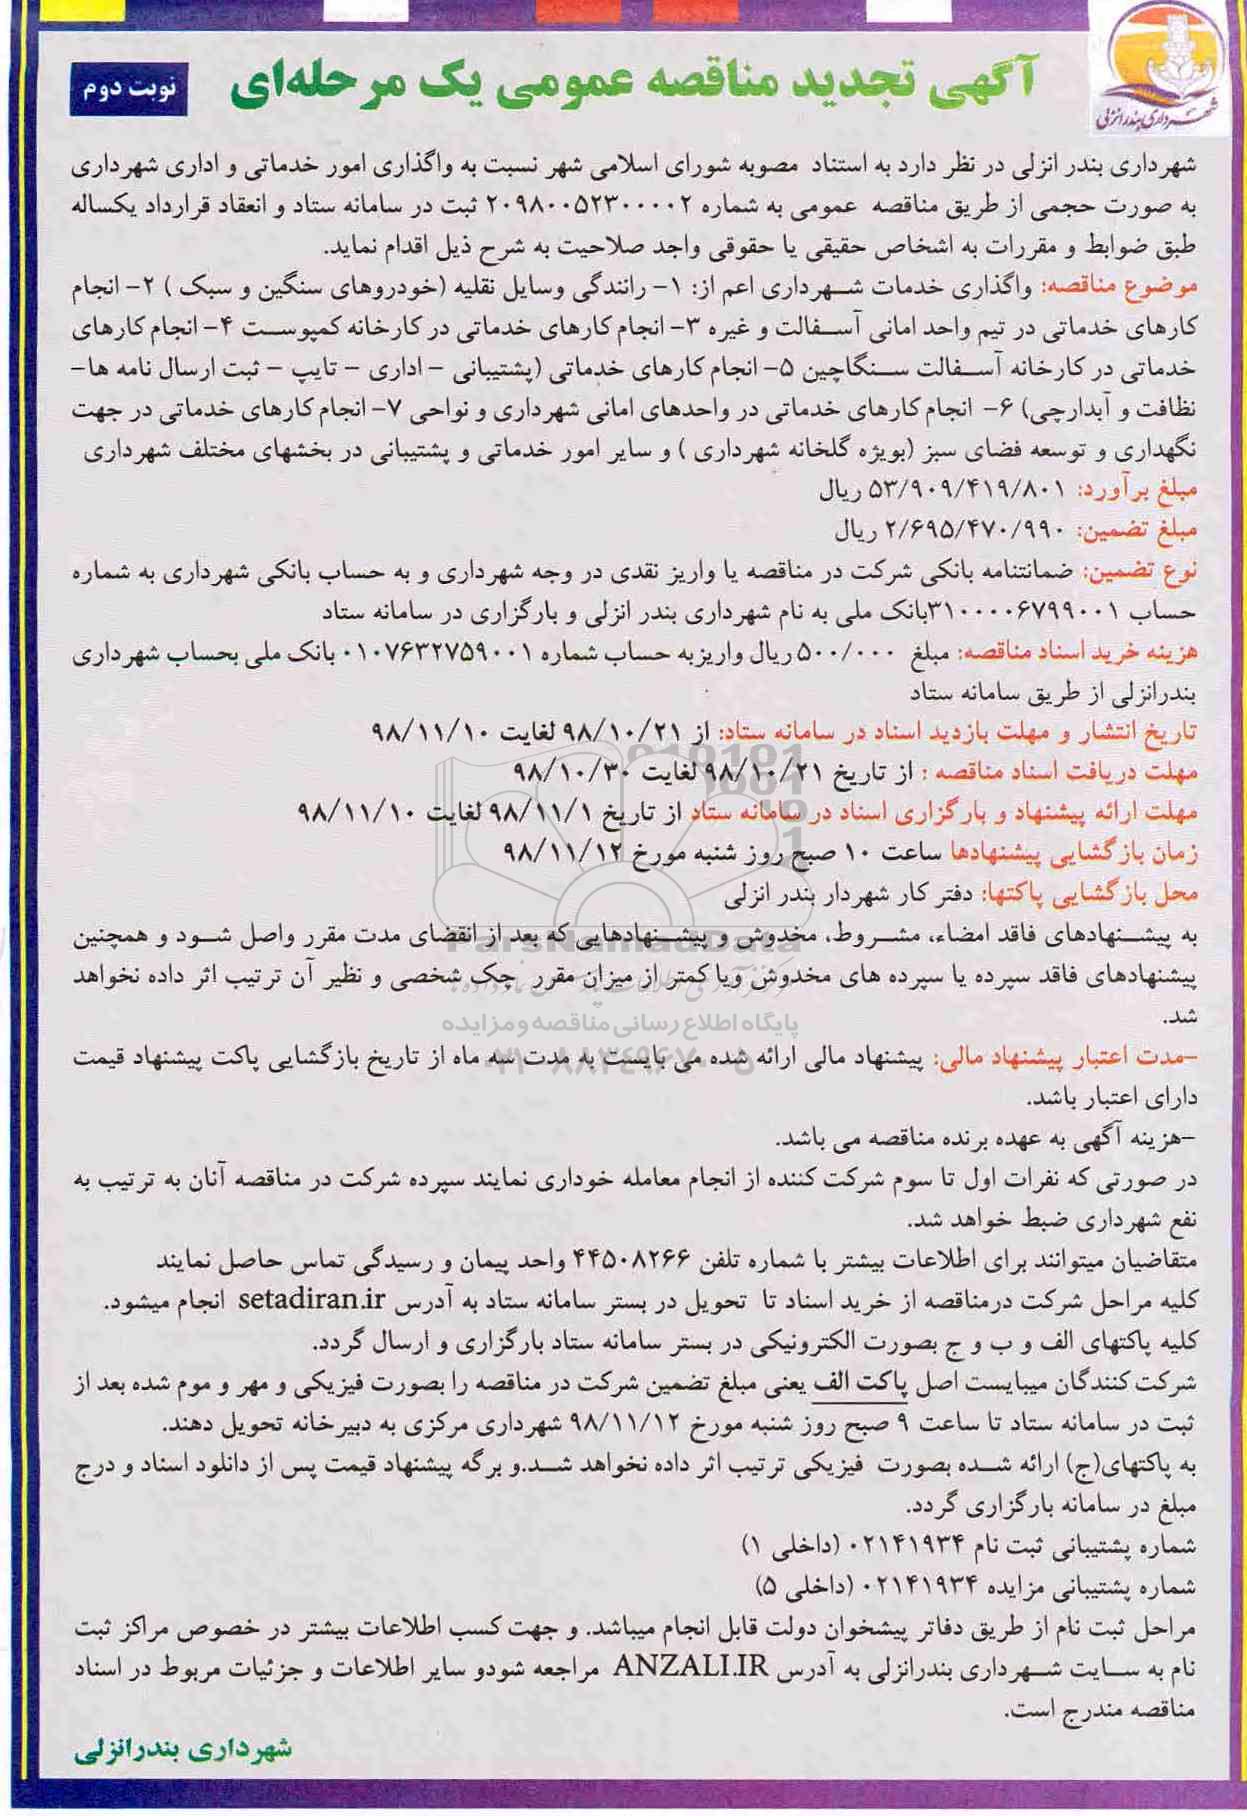 شهرداری بندرانزلی
آگهی تجدید مناقصه عمومی یک مرحله‌ای
نوبت دوم
شهرداری بندر انزلی در نظر دارد به استناد مصوبه شورای اسلامی شهر نسبت به واگذاری امور خدماتی و اداری شهرداری
به صورت حجمی از طریق مناقصه عمومی به شماره ۲۰۹۸۰۰۵۲۳۰۰۰۰۲ ثبت در سامانه ستاد و انعقاد قرارداد یکساله
طبق ضوابط و مقررات به اشخاص حقیقی یا حقوقی واجد صلاحیت به شرح ذیل اقدام نماید.
موضوع مناقصه: واگذاری خدمات شهرداری اعم از: ۱- رانندگی وسایل نقلیه (خودروهای سنگین و سبک ) ۲- انجام
کارهای خدماتی در تیم واحد امانی آسفالت و غیره ۳- انجام کارهای خدماتی در کارخانه کمپوست ۴- انجام کارهای
خدماتی در کارخانه آسفالت سنگاچین ۵- انجام کارهای خدماتی (پشتیبانی - اداری - تایپ - ثبت ارسال نامه ها-
نظافت و آبدارچی) ۶- انجام کارهای خدماتی در واحدهای امانی شهرداری و نواحی ۷- انجام کارهای خدماتی در جهت
نگهداری و توسعه فضای سبز (بویژه گلخانه شهرداری ) و سایر امور خدماتی و پشتیبانی در بخشهای مختلف شهرداری
مبلغ برآورد: ۵۳/۹۰۹/۴۱۹/۸۰۱ ریال
مبلغ تضمین: ۲/۶۹۵/۴۷۰/۹۹۰ ریال
نوع تضمین: ضمانتنامه بانکی شرکت در مناقصه یا واریز نقدی در وجه شهرداری و به حساب بانکی شهرداری به شماره
حساب ۳۱۰۰۰۰۶۷۹۹۰۰۱بانک ملی به نام شهرداری بندر انزلی و بارگزاری در سامانه ستاد
هزینه خرید اسناد مناقصه: مبلغ ۵۰۰/۰۰۰ ریال واریزبه حساب شماره ۰۱۰۷۶۳۲۷۵۹۰۰۱ بانک ملی بحساب شهرداری
بندرانزلی از طریق سامانه ستاد
تاریخ انتشار و مهلت بازدید اسناد در سامانه ستاد: از ۹۸/۱۰/۲۱ لغایت ۹۸/۱۱/۱۰
مهلت دریافت اسناد مناقصه : از تاریخ ۹۸/۱۰/۲۱ لغایت ۹۸/۱۰/۳۰
مهلت ارائه پیشنهاد و بارگزاری اسناد در سامانه ستاد از تاریخ ۹۸/۱۱/۱ لغایت ۹۸/۱۱/۱۰
زمان بازگشایی پیشنهادها ساعت ۱۰ صبح روز شنبه مورخ ۹۸/۱۱/۱۲
محل بازگشایی پاکتها: دفتر کار شهردار بندر انزلی
به پیشنهادهای فاقد امضاء، مشروط، مخدوش و پیشنهادهایی که بعد از انقضای مدت مقرر واصل شود و همچنین
ParsNamadData
پیشنهادهای فاقد سپرده یا سپرده های مخدوش ویا کمتر از میزان مقرر چک شخصی و نظیر آن ترتیب اثر داده نخواهد
شد.
پایگاه اطلاع رسانی مناقصه و مزایده
-مدت اعتبار پیشنهاد مالی: پیشنهاد مالی ارائه شده می بایست به مدت سه ماه از تاریخ بازگشایی پاکت پیشنهاد قیمت
دارای اعتبار باشد.
-هزینه آگهی به عهده برنده مناقصه می باشد.
در صورتی که نفرات اول تا سوم شرکت کننده از انجام معامله خوداری نمایند سپرده شرکت در مناقصه آنان به ترتیب به
نفع شهرداری ضبط خواهد شد.
متقاضیان میتوانند برای اطلاعات بیشتر با شماره تلفن ۴۴۵۰۸۲۶۶ واحد پیمان و رسیدگی تماس حاصل نمایند
کلیه مراحل شرکت درمناقصه از خرید اسناد تا تحویل در بستر سامانه ستاد به آدرس setadiran.ir انجام میشود.
کلیه پاکتهای الف و ب و ج بصورت الکترونیکی در بستر سامانه ستاد بارگزاری و ارسال گردد.
شرکت کنندگان میبایست اصل پاکت الف یعنی مبلغ تضمین شرکت در مناقصه را بصورت فیزیکی و مهر و موم شده بعد از
ثبت در سامانه ستاد تا ساعت ۹ صبح روز شنبه مورخ ۹۸/۱۱/۱۲ شهرداری مرکزی به دبیرخانه تحویل دهند.
به پاکتهای(ج) ارائه شده بصورت فیزیکی ترتیب اثر داده نخواهد شد.و برگه پیشنهاد قیمت پس از دانلود اسناد و درج
مبلغ در سامانه بارگزاری گردد.
شماره پشتیبانی ثبت نام ۰۲۱۴۱۹۳۴ (داخلی ۱)
شماره پشتیبانی مزایده ۰۲۱۴۱۹۳۴ (داخلی ۵)
مراحل ثبت نام از طریق دفاتر پیشخوان دولت قابل انجام میباشد. و جهت کسب اطلاعات بیشتر در خصوص مراکز ثبت
نام به سایت شهرداری بندرانزلی به آدرس ANZALI.IR مراجعه شودو سایر اطلاعات و جزئیات مربوط در اسناد
مناقصه مندرج است.
شهرداری بندرانزلی